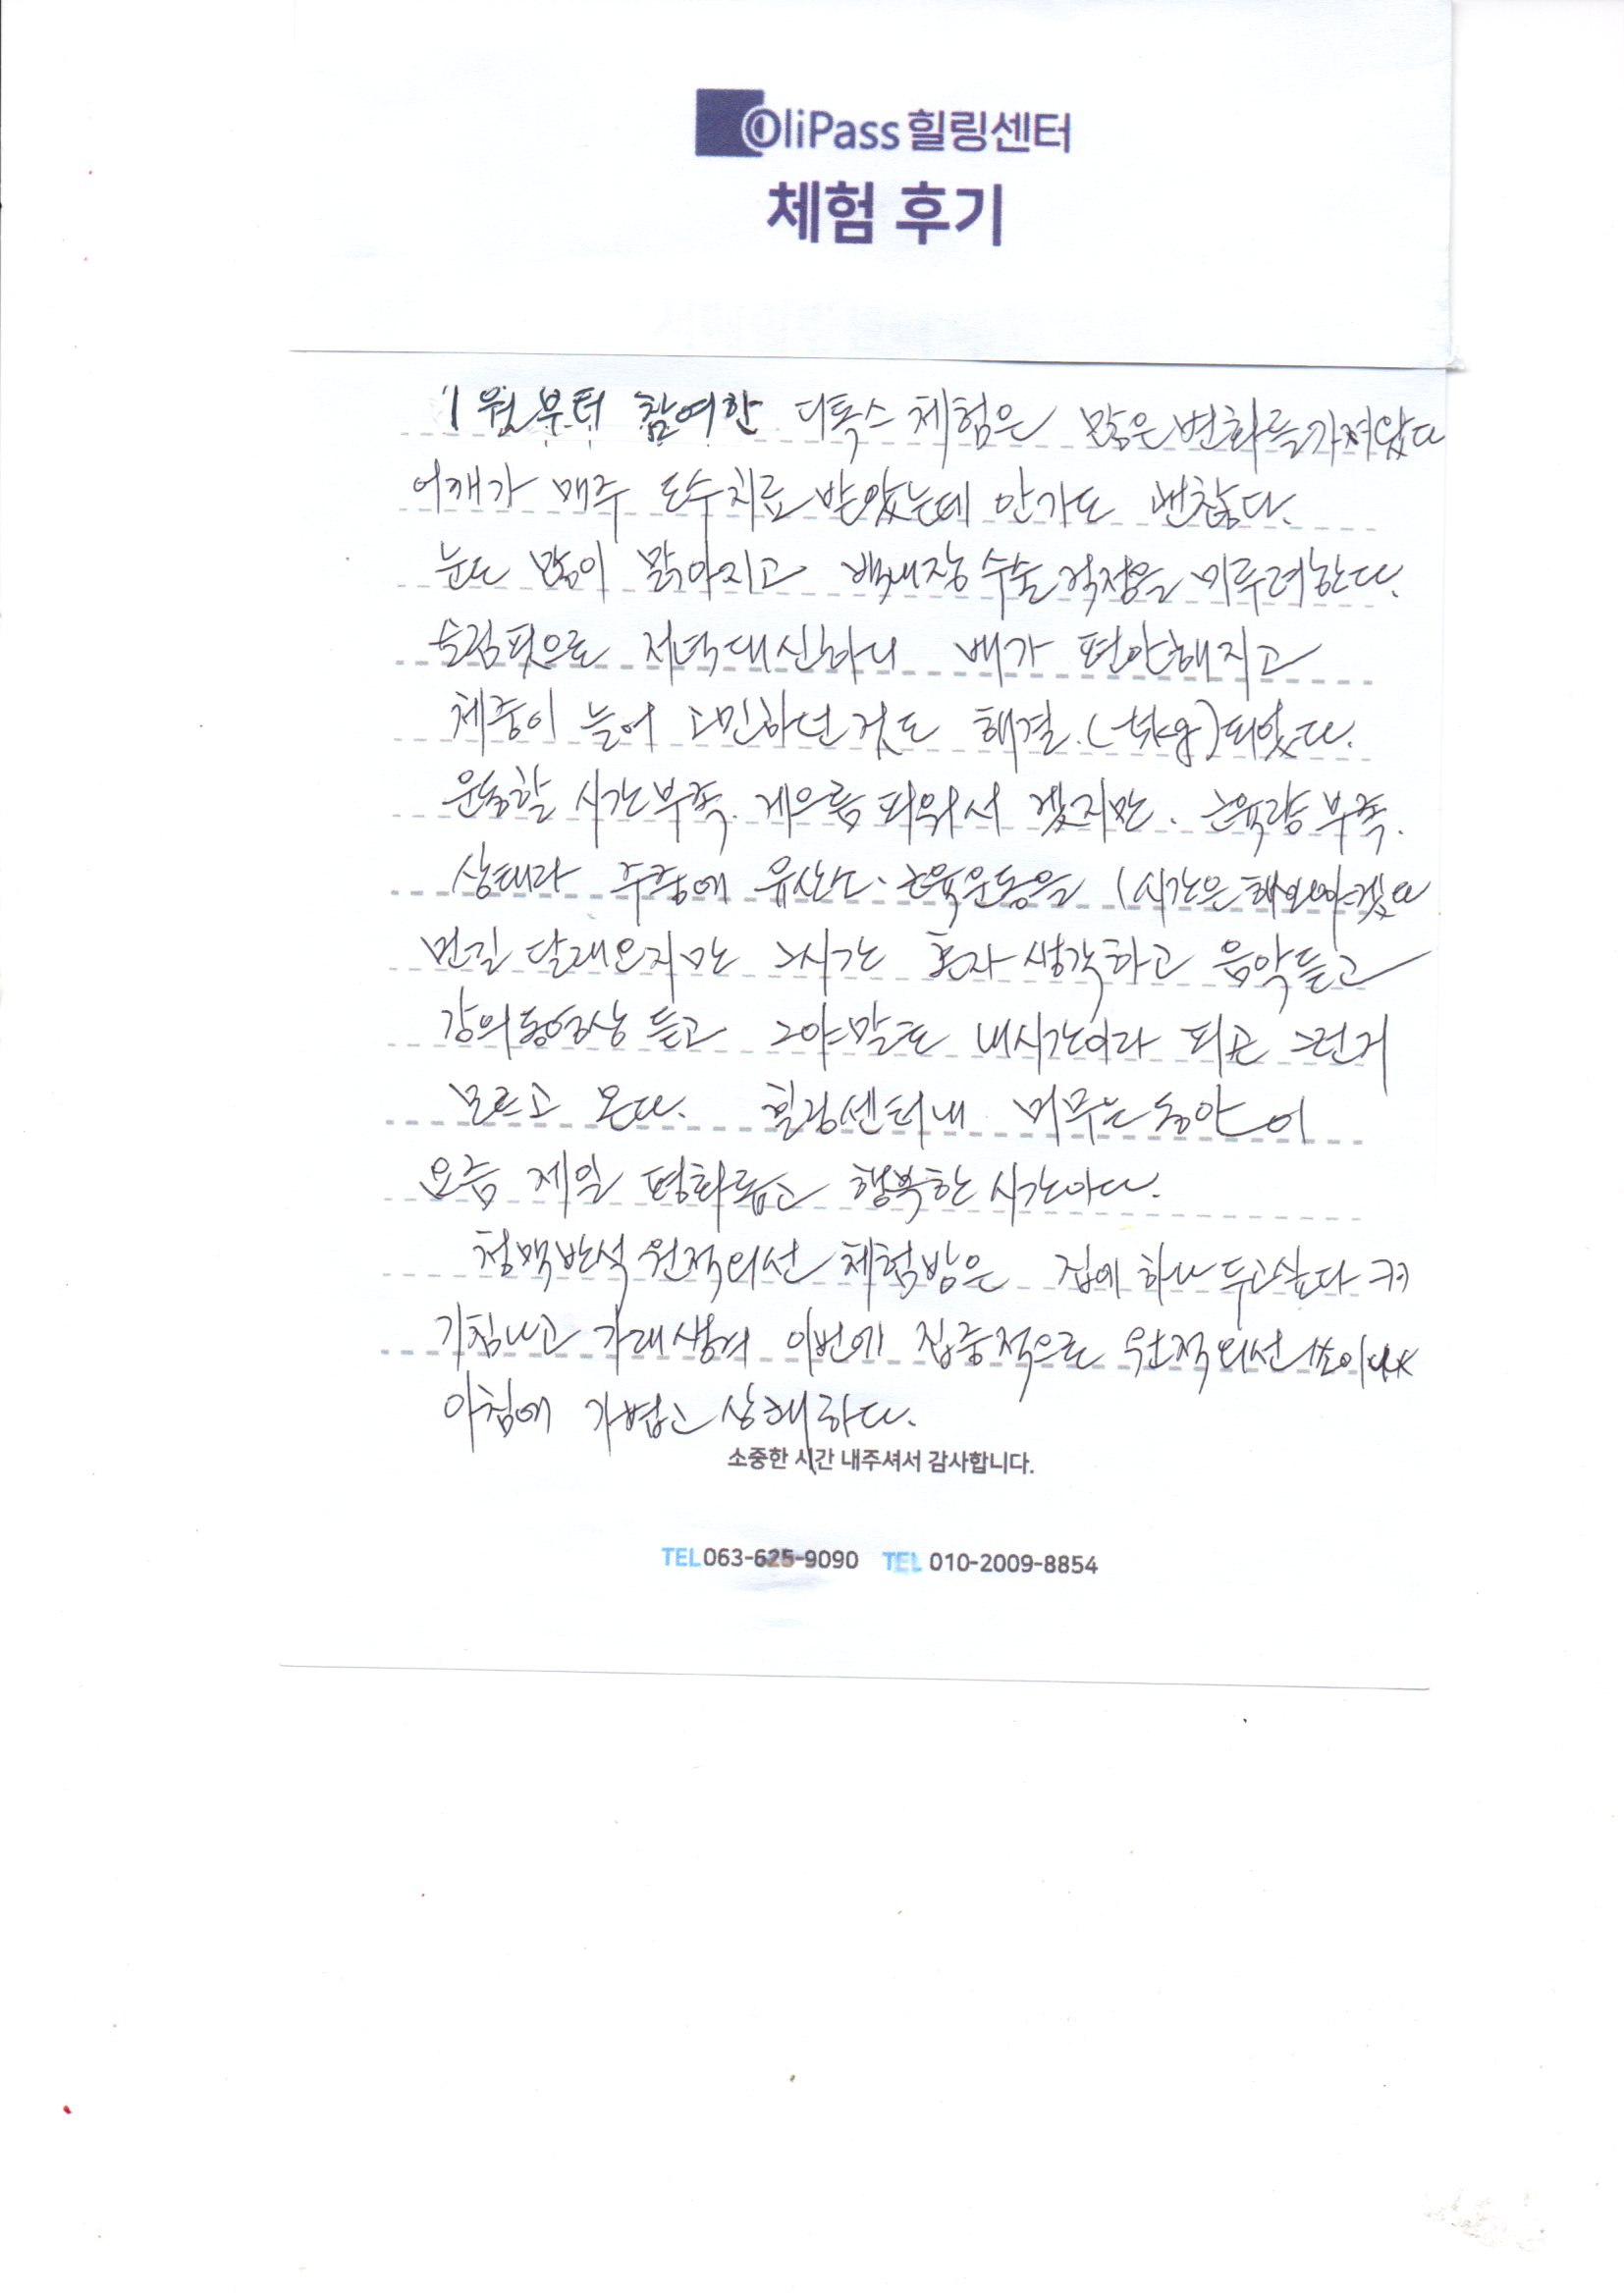 OliPass 힐링센터
체험 후기
1월부터 참여한 디톡스 체험은 많은변화를가져왔다
어깨가 매주 도수치료 받았는데 안가도 괜찮다.
눈도 많이 맑아지고 백내장수술걱정을 미루려한다.
저녁대신하니 배가 편안해지고
체중이 늘어 고민하던것도 해결.( )되었다.
운동할 시간부족. 게으름 피워서 겠지만. 근육량 부족.
상태라 주중에 유산소·근육운동을 1시간은 해보아야겠다
먼길 달려오지만 그시간 혼자생각하고 음악듣고
강의동영상 듣고 그야말로 내시간이라 피곤 그런거
모르고 온다. 힐링센터내 머무는동안이
요즘 제일 평화롭고 행복한 시간이다.
원적외선 체험방은 집에 하나 두고싶다 ㅋㅋ
기침나고 가래생겨 이번에 집중적으로 원적외선
아침에 가볍고 상쾌하다.
소중한 시간 내주셔서 감사합니다.
TEL 063-625-9090 TEL 010-2009-8854